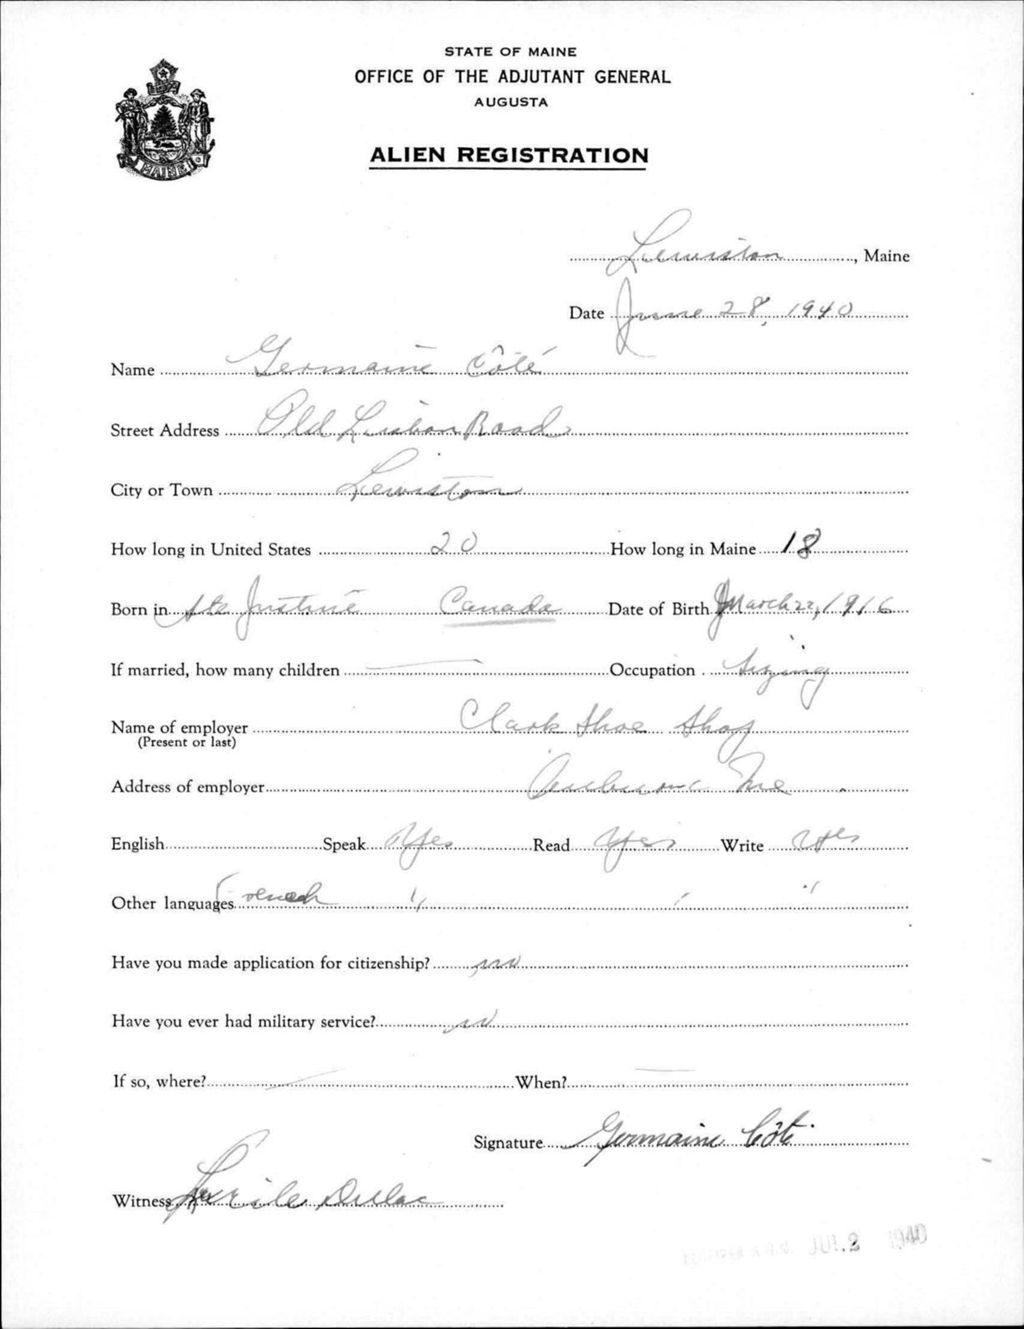 STATE OF MAINE
OFFICE OF THE ADJUTANT GENERAL
AUGUSTA
MAINE
ALIEN REGISTRATION
Lewiston, Maine
Date June 28, 1940
Name Germaine Côté
Street Address Old Lisbon Road
City or Town Lewiston
How long in United States 20 How long in Maine 18
Born in Ste Justine Canada Date of Birth March 22, 1916
If married, how many children — Occupation
Name of employer Clark Shoe Shop
(Present or last)
Address of employer Auburn Me
English Speak Yes Read Yes Write Yes
Other languages French " " "
Have you made application for citizenship? no
Have you ever had military service? no
If so, where? — When? —
Signature Germaine Côté
Witness Lucile Dulac
JUL 2 1940